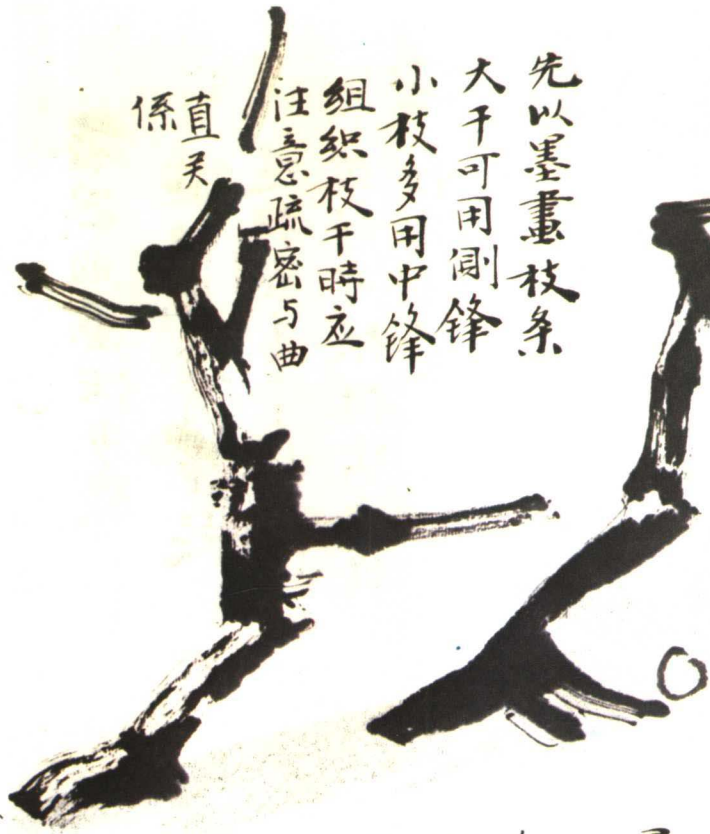 先以墨畫枝条
大干可用側锋
小枝多用中锋
组织枝干時应
注意疏密与曲
直关
係